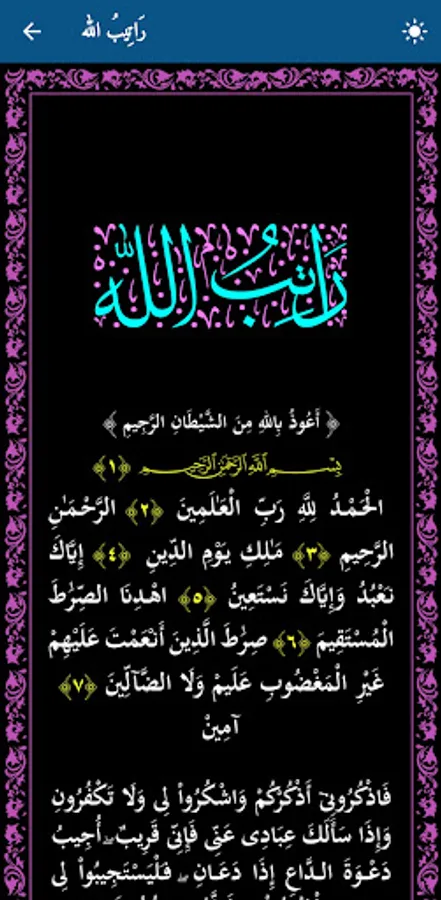 رَاتِبُ الله
رَاتِبُ اللّٰه
﴿ أَعُوذُ بِاللهِ مِنَ الشَّيْطَانِ الرَّجِيمِ ﴾
بِسْمِ اللَّهِ الرَّحْمَٰنِ الرَّحِيمِ ﴿١﴾
الْحَمْدُ لِلَّهِ رَبِّ الْعَٰلَمِينَ ﴿٢﴾ الرَّحْمَٰنِ
الرَّحِيمِ ﴿٣﴾ مَٰلِكِ يَوْمِ الدِّينِ ﴿٤﴾ إِيَّاكَ
نَعْبُدُ وَإِيَّاكَ نَسْتَعِينُ ﴿٥﴾ اهْدِنَا الصِّرَٰطَ
الْمُسْتَقِيمَ ﴿٦﴾ صِرَٰطَ الَّذِينَ أَنْعَمْتَ عَلَيْهِمْ
غَيْرِ الْمَغْضُوبِ عَلَيْهِمْ وَلَا الضَّآلِّينَ ﴿٧﴾
آمِينْ
فَاذْكُرُونِيٓ أَذْكُرْكُمْ وَاشْكُرُواْ لِي وَلَا تَكْفُرُونِ
وَإِذَا سَأَلَكَ عِبَادِى عَنِّي فَإِنِّي قَرِيبٌ ۖ أُجِيبُ
دَعْوَةَ الدَّاعِ إِذَا دَعَانِ ۖ فَلْيَسْتَجِيبُواْ لِي